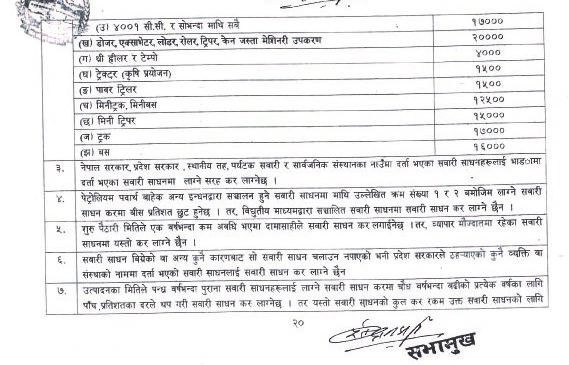 (उ) ४००१ सी.सी. र सोभन्दा माथि सबै १७०००
(ख) डोजर, एक्साभेटर, लोडर, रोलर, ट्रिपर, केन जस्ता मेशिनरी उपकरण २००००
(ग) थ्री ह्वीलर र टेम्पो ४०००
(घ) ट्रेक्टर (कृषि प्रयोजन) १५००
(ङ) पावर ट्रिलर १५००
(च) मिनीट्रक, मिनीबस १२५००
(छ) मिनी ट्रिपर १५०००
(ज) ट्रक १७०००
(झ) बस १६०००
३. नेपाल सरकार, प्रदेश सरकार , स्थानीय तह, पर्यटक सवारी र सार्वजनिक संस्थानका नाउँमा दर्ता भएका सवारी साधनहरूलाई भाडामा
दर्ता भएका सवारी साधनमा लाग्ने सरह कर लाग्नेछ ।
४. पेट्रोलियम पदार्थ बाहेक अन्य इन्धनद्वारा सञ्चालन हुने सवारी साधनमा माथि उल्लेखित क्रम संख्या १ र २ बमोजिम लाग्ने सवारी
साधन करमा बीस प्रतिशत छुट हुनेछ । तर, विद्युतीय माध्यमद्वारा सञ्चालित सवारी साधनमा सवारी साधन कर लाग्ने छैन ।
५. गुरु पैठारी मितिले एक वर्षभन्दा कम अवधि भएमा दामासाहीले सवारी कर लगाईनेछ । तर, व्यापार मौज्दातमा रहेका सवारी
साधनमा यस्तो कर लाग्ने छैन ।
६. सवारी साधन बिग्रेको वा अन्य कुनै कारणबाट सो सवारी साधन चलाउन नपाएको भनी प्रदेश सरकारले ठहऱ्याएको कुनै व्यक्ति वा
संस्थाको नाममा दर्ता भएको सवारी साधनलाई सवारी साधन कर लाग्ने छैन
७. उत्पादनका मितिले पन्ध्र वर्षभन्दा पुराना सवारी साधनहरूलाई लाग्ने सवारी साधन करमा चौध वर्षभन्दा बढीको प्रत्येक वर्षका लागि
पाँच प्रतिशतका दरले थप गरी सवारी साधन कर लाग्नेछ । तर यस्तो सवारी साधनको कुल कर रकम उक्त सवारी साधनको लागि
२०
सभामुख